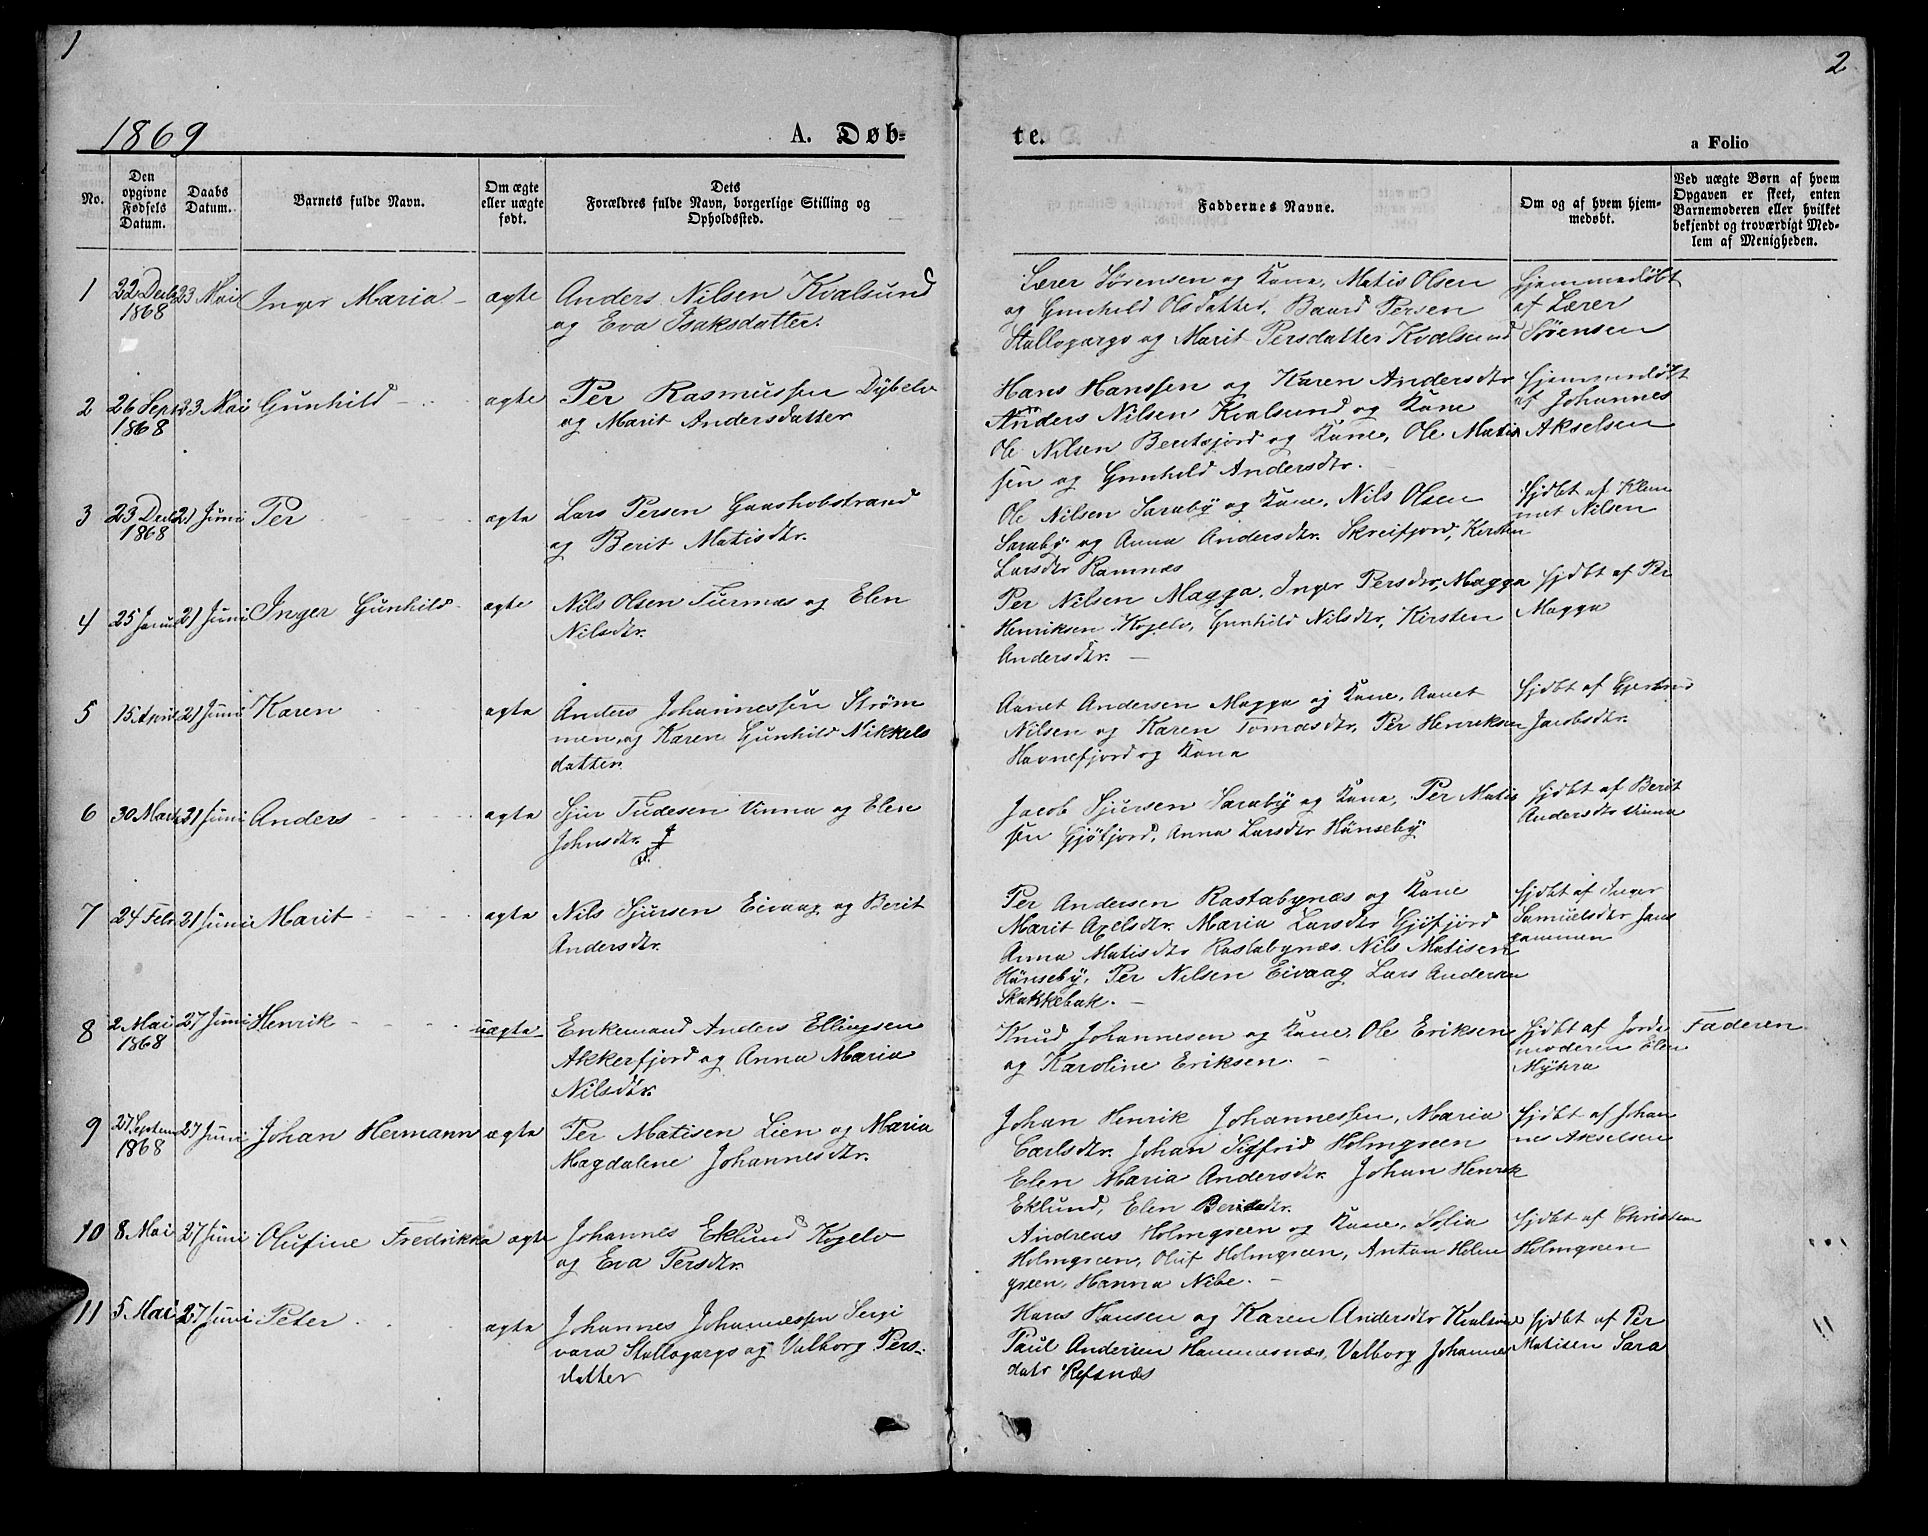 1
2
1869
A. Døb-
te.
a Folio
No.
Den opgivne Fødsels Datum.
Daabs Datum.
Barnets fulde Navn.
Om ægte eller uægte født.
Dets Forældres fulde Navn, borgerlige Stilling og Opholdssted.
Faddernes Navne.
Om og af hvem hjemmedøbt.
Ved uægte Børn af hvem Opgaven er skeet, enten Barnemoderen eller hvilket bekjendt og troværdigt Medlem af Menigheden.
1 22 Decbr 1868 23 Mai Inger Maria ægte
Anders Nilsen Kvalsund
og Eva Isaksdatter.
Lærer Sørensen og Kone, Matis Olsen
og Gunhild Olsdatter, Baard Persen
Stallogargo og Marit Persdatter Kvalsund
Hjemmedøbt
af Lærer
Sørensen
2 26 Sept 1868 23 Mai Gunhild ægte
Per Rasmussen Dybelv
og Marit Andersdatter
Hans Hanssen og Karen Andersdtr
Anders Nilsen Kvalsund og Kone
Ole Nilsen Bentsjord og Kone, Ole Matis
sen og Gunhild Andersdtr.
Hjemmedøbt
af Johannes
Akselsen
3 23 Decb 1868 21 Juni Per ægte
Lars Persen Gaashobstrand
og Berit Matisdtr.
Ole Nilsen Saraby og Kone, Nils Olsen
Saraby og Anna Andersdtr. Skreifjord, Kirsten
Larsdtr Ramnæs
Hjdbt af Klem
met Nilsen
4 25 Januar 21 Juni Inger Gunhild ægte
Nils Olsen Turnæs og Elen
Nilsdtr.
Per Nilsen Magga, Inger Persdtr, Magga
Henriksen Kogelv, Gunhild Nilsdtr, Kirsten
Andersdtr.
Hjdbt af Per
Magga
5 15 April 21 Juni Karen ægte
Anders Johannessen Strøm
men og Karen Gunhild Nikkels
datter
Aanet Andersen Magga og Kone, Aanet
Nilsen og Karen Tomasdtr, Per Henriksen
Havnefjord og Kone
Hjdbt af Gjertrud
Jacobsdtr.
6 30 Marts 21 Juni Anders ægte
Sjur Tudesen Vinna og Elen
Johnsdtr.
Jacob Sjursen Saraby og Kone, Per Matis
sen Gjøfjord, Anna Larsdtr Hønseby
Hjdbt af Berit
Andersdtr Vinna
7 24 Febr 21 Juni Marit ægte
Nils Sjursen Eivaag og Berit
Andersdtr.
Per Andersen Rastabynæs og Kone
Marit Axelsdtr. Maria Larsdtr Gjøfjord
Anna Matisdtr Rastabynæs. Nils Matisen
Hønseby, Per Nilsen Eivaag Lars Andersen
Skakkebak.
Hjdbt af Inger
Samuelsdtr Jans
gammen
8 2 Mai 1868 27 Juni Henrik uægte
Enkemand Anders Ellingsen
Akkerfjord og Anna Maria
Nilsdtr.
Knud Johannesen og Kone, Ole Eriksen
og Karoline Eriksen.
Hjdbt af Jorde
moderen Elen
Myhra
Faderen
9 27 Septem 1868 27 Juni Johan Hermann ægte
Per Matisen Lien og Maria
Magdalene Johannesdtr.
Johan Henrik Johannessen, Maria
Carlsdtr. Johan Sigfrid Holmgreen
Elen Maria Andersdtr. Johan Henrik
Eklund, Elen Beritsdtr.
Hjdbt af Johan
nes Akselsen
10 8 Mai 27 Juni Olufine Fredrikka ægte
Johannes Eklund Kogelv
og Eva Persdtr.
Andreas Holmgreen og Kone, Sofia
Holmgreen, Oluf Holmgreen, Anton Holm
green, Hanna Nibe.
Hjdbt af Christian
Holmgreen
11 5 Mai 27 Juni Peter ægte
Johannes Johannessen Sergi
vara Stallogargo og Valborg Pers-
datter
Hans Hansen og Karen Andersdtr Kvalsund
Paul Andersen Hammernæs, Valborg Johannes
datr Refsnæs
Hjdbt af Per
Matisen Sara